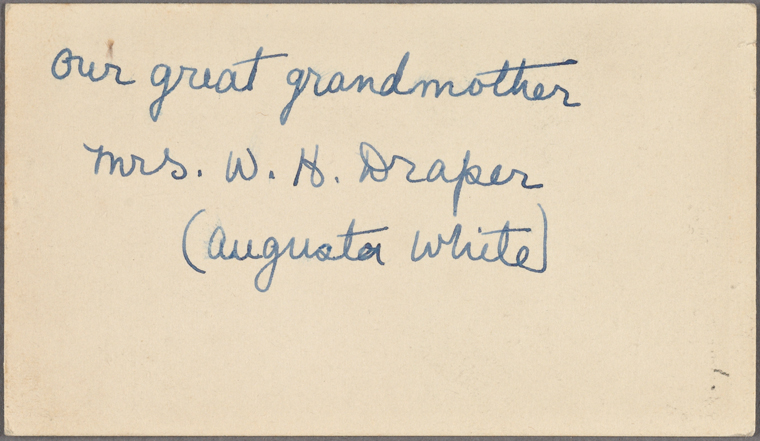 our great grandmother
Mrs. W. H. Draper
(Augusta White)